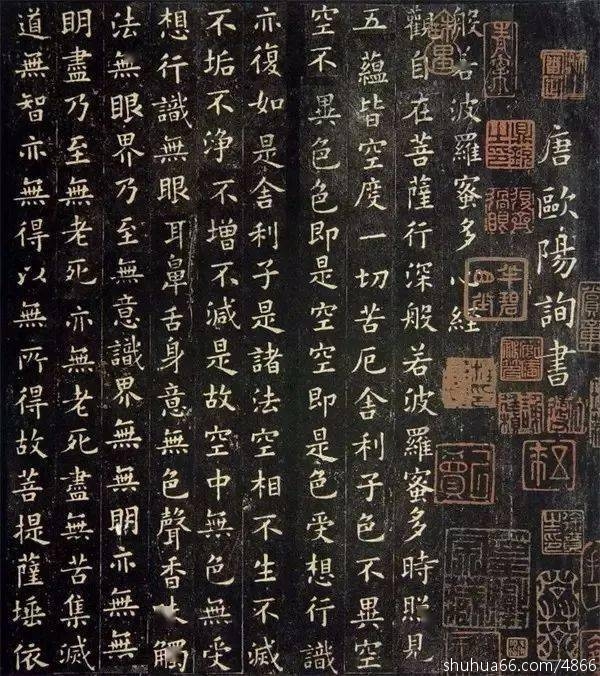 唐歐陽詢書
般若波羅蜜多心經
觀自在菩薩行深般若波羅蜜多時照見
五蘊皆空度一切苦厄舍利子色不異空
空不異色色即是空空即是色受想行識
亦復如是舍利子是諸法空相不生不滅
不垢不净不增不減是故空中無色無受
想行識無眼耳鼻舌身意無色聲香味觸
法無眼界乃至無意識界無無明亦無無
明盡乃至無老死亦無老死盡無苦集滅
道無智亦無得以無所得故菩提薩埵依
shuhua66.com/4866